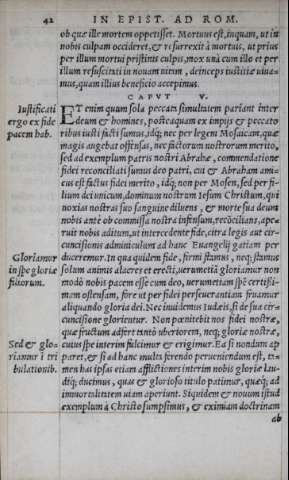 42 IN EPIST. AD ROM.
ob quæ ille mortem oppetisset. Mortuus est, inquam, ut in
nobis culpam occideret, & resurrexit à mortuis, ut prius
per illum mortui pristinis culpis, mox unà cum illo et per
illum resuscitati in nouam uitam, deinceps iustitiæ uiua=
mus, quam illius beneficio accepimus.
CAPVT V.
Iustificati
ergo ex fide
pacem hab.
ET enim quum sola peccata simultatem pariant inter
deum & homines, posteaquam ex impijs & peccato
ribus iusti facti sumus, idq; nec per legem Mosaicam, quæ
magis augebat offensas, nec factorum nostrorum merito,
sed ad exemplum patris nostri Abrahæ, commendatione
fidei reconciliati sumus deo patri, cui & Abraham ami=
cus est factus fidei merito, idq; non per Mosen, sed per fi=
lium dei unicum, dominum nostrum Iesum Christum, qui
noxias nostras suo sanguine diluens, & morte sua deum
nobis ante ob commissa nostra infensum, recōcilians, ape=
ruit nobis aditum, ut intercedente fide, citra legis aut cir=
cuncisionis adminiculum ad hanc Euangelij gatiam per
Gloriamur
in spe gloriæ
filiorum.
duceremur. In qua quidem fide, firmi stamus, neq; stamus
solum animis alacres et erecti, uerumetiā gloriamur non
modò nobis pacem esse cum deo, uerumetiam spē certissi=
mam ostensam, fore ut per fidei perseuerantiam fruamur
aliquando gloria dei. Nec inuidemus Iudæis, si de sua cir=
cuncisione glorientur. Non pœnitebit nos fidei nostræ,
quæ fructum adfert tantò uberiorem, neq; gloriæ nostræ,
Sed & glo=
riamur ī tri
bulationib.
cuius spe interim fulcimur & erigimur. Ea si nondum ap
paret, & si ad hanc multa ferendo perueniendum est, ta=
men hæ ipsæ etiam afflictiones interim nobis gloriæ lau=
diq; ducimus, quæ & glorioso titulo patimur, quæq; ad
immortalitatem uiam aperiunt. Siquidem & nouum istud
exemplum à Christo sumpsimus, & eximiam doctrinam
ab